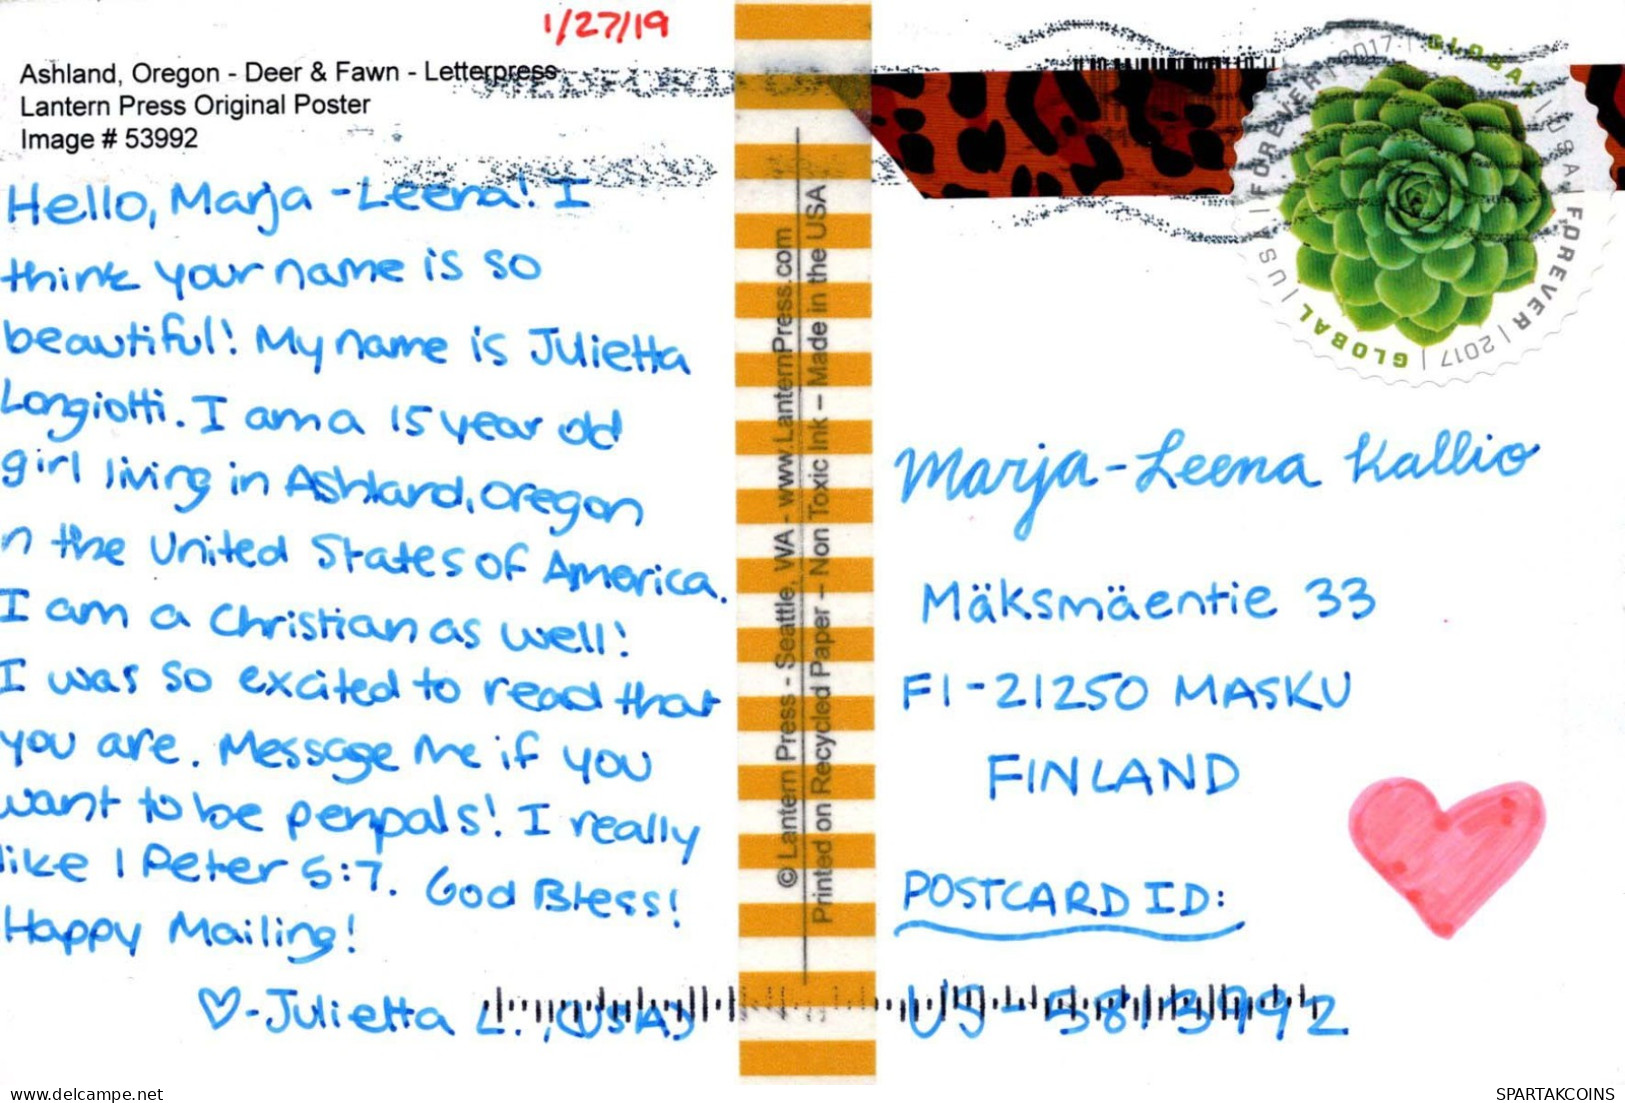 1/27/19
Ashland, Oregon - Deer & Fawn - Letterpress
Lantern Press Original Poster
Image # 53992
Hello, Marja-Leena! I
think your name is so
beautiful! My name is Julietta
Longiotti. I am a 15 year old
girl living in Ashland, Oregon
n the United States of America.
I am a Christian as well!
I was so excited to read that
you are. Message me if you
want to be penpals! I really
like 1 Peter 5:7. God Bless!
Happy Mailing!
♡-Julietta L., (USA)
© Lantern Press - Seattle, WA - www.LanternPress.com
Printed on Recycled Paper – Non Toxic Ink – Made in the USA
GLOBAL | USA | FOREVER | 2017 | GLOBAL | USA | FOREVER | 2017 |
Marja-Leena Kallio
Mäksmäentie 33
FI-21250 MASKU
FINLAND
POSTCARD ID:
US-5813992
delcampe.net
SPARTAKCOINS